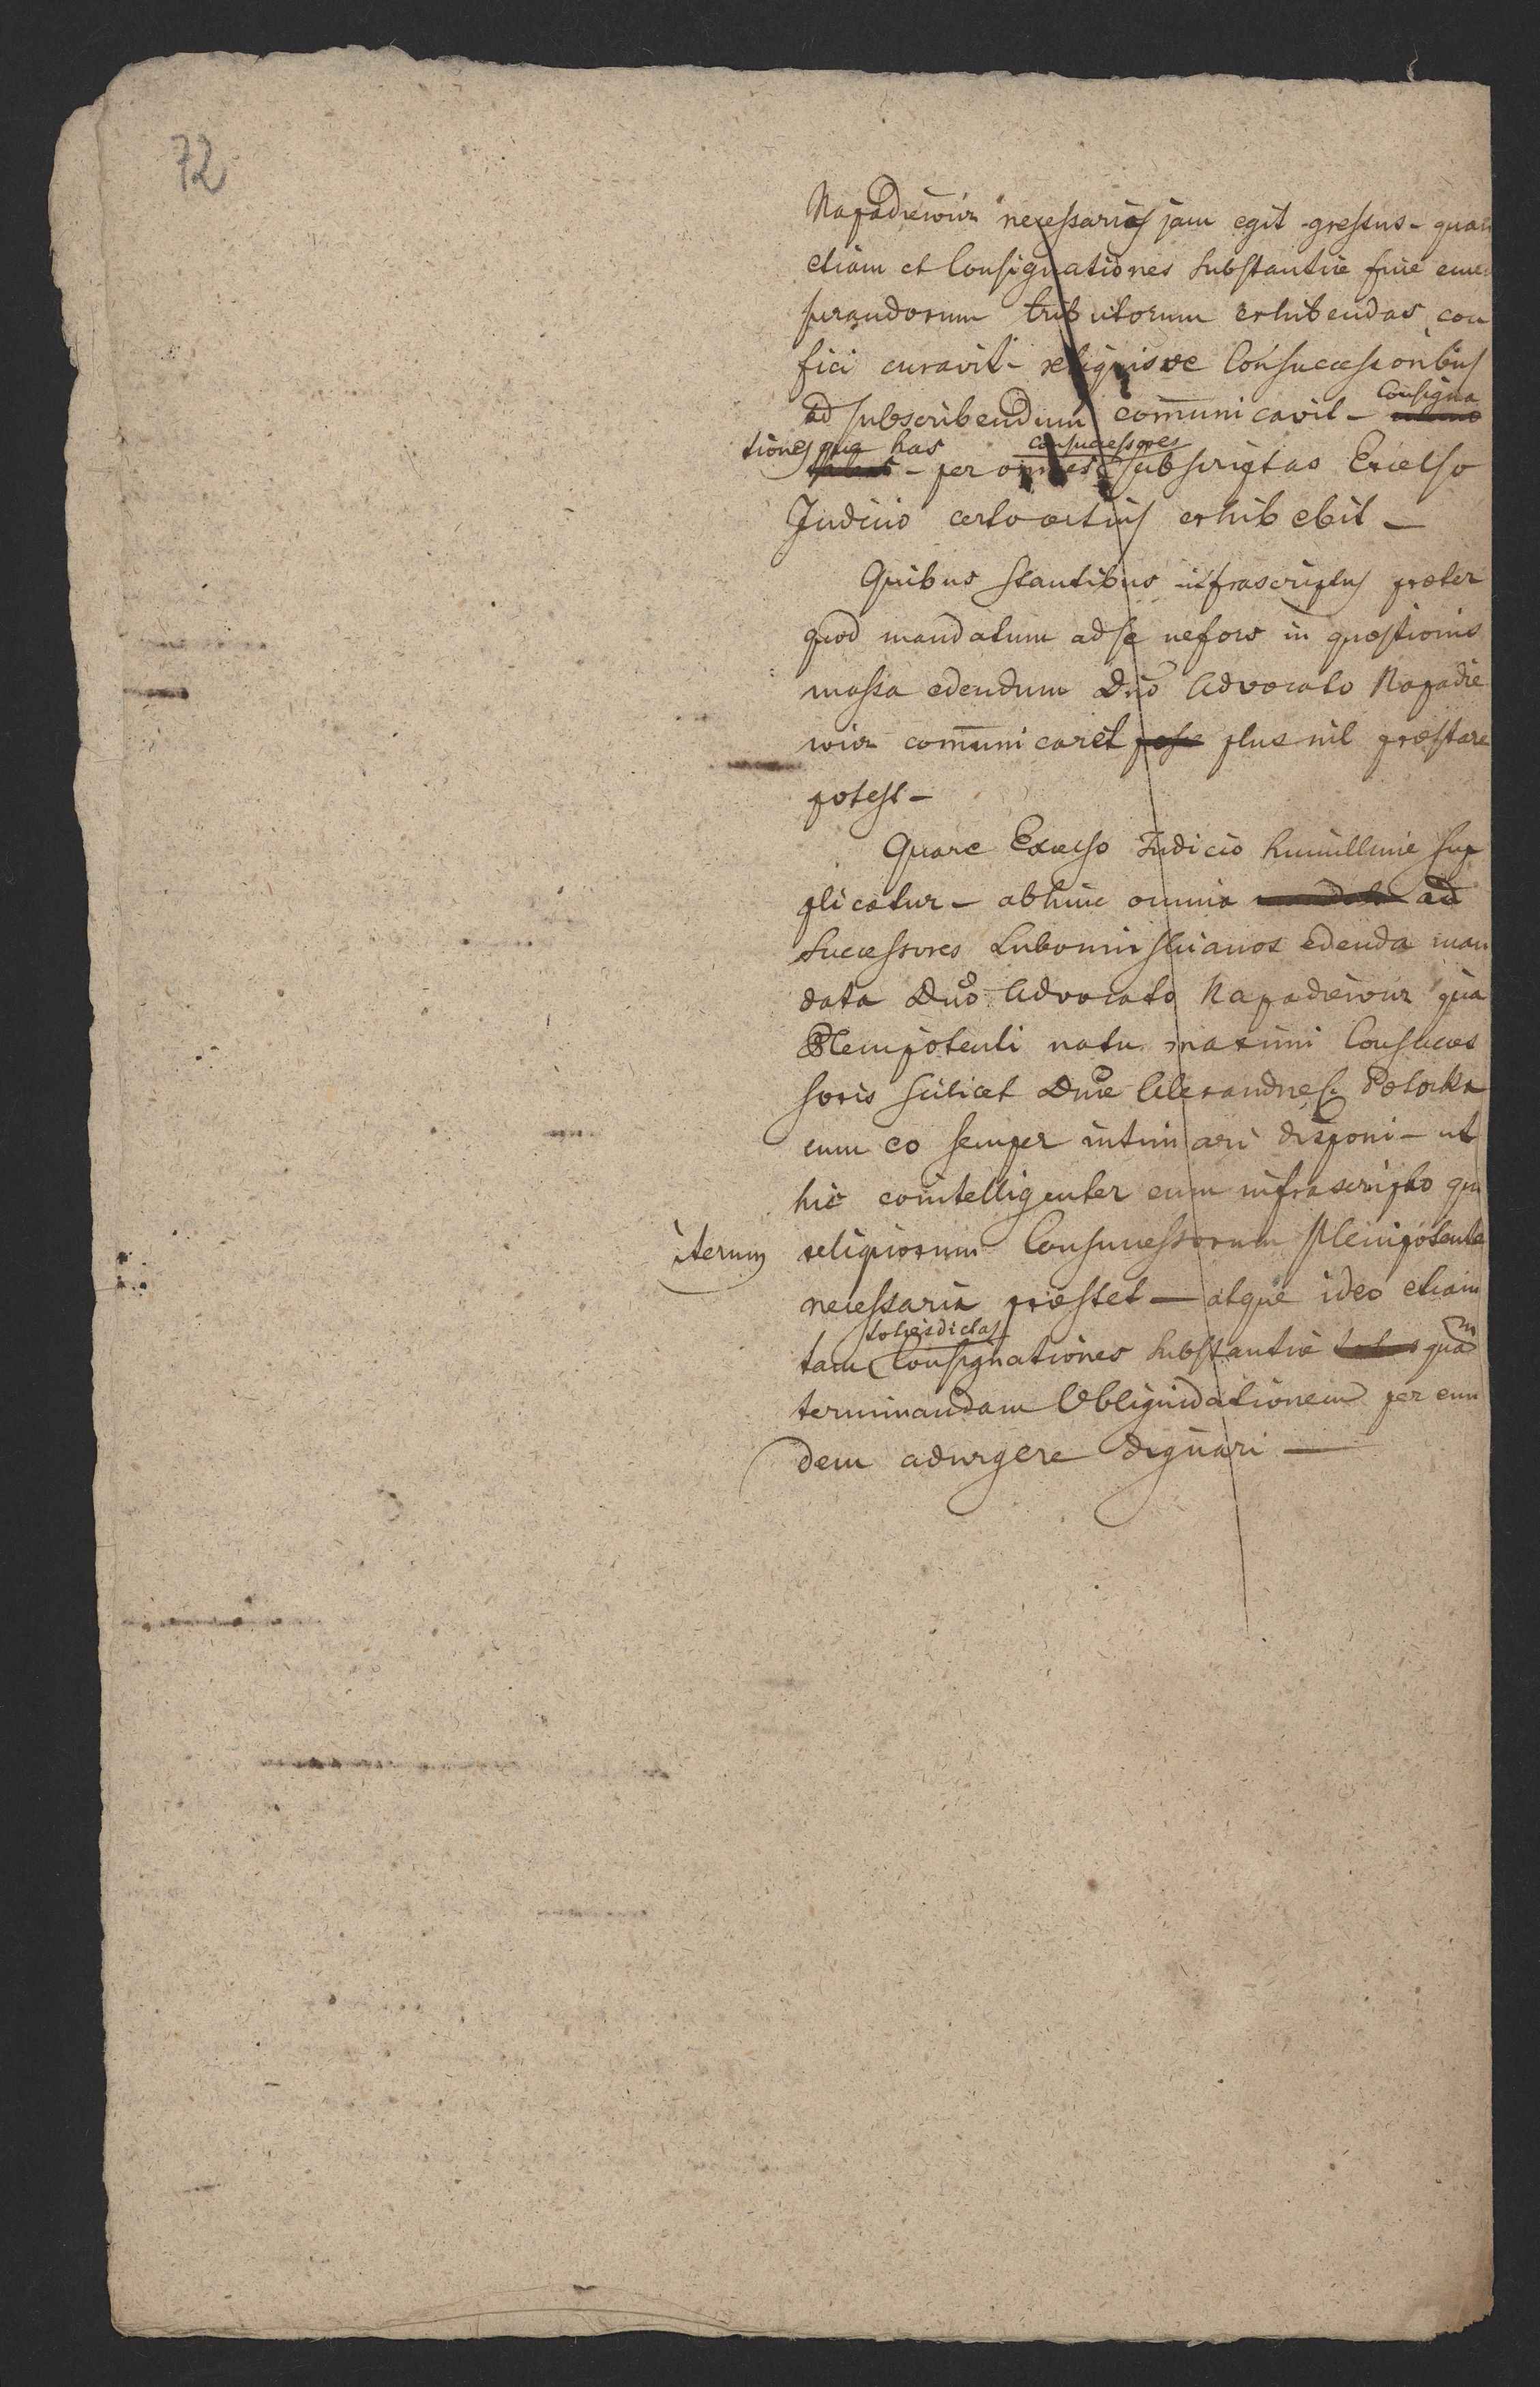 72
Napadiewicz necessarios jam egit gressus – quam
etiam et Consignationes substantiæ fine emen
surandorum tributorum exhibendas con
fici curavit – reliquisve Consuccessoribus
ad subscribendum com̄unicavit – Consigna
tionesque has – per omnes consuccessores subscriptas Excelso
Judicio certo certius exhibebit –
Quibus stantibus infrascriptus præter
quod mandatum ad se nefors in quæstionis
massa edendum Dno Advocato Napadie
wicz com̄unicaret plus nil præstare
potest –
Quare Excelso Judicio humillime sup
plicatur – abhinc omnia ad
Successores Lubomirscianos edenda man
data Dno Advocato Napadiewicz qua
Plenipotenti natu maximi Consucces
soris scilicet Dnæ Alexandræ C. Potocka
cum eo semper intimari disponi – ut
hic cointelligenter cum infrascripto qua
iterum reliquorum Consuccessorum Plenipotente
necessaria præstet – atque ideo etiam
tam totiesdictas Consignationes substantiæ quam
terminandam Obliquidationem per eun
dem adurgere dignari –